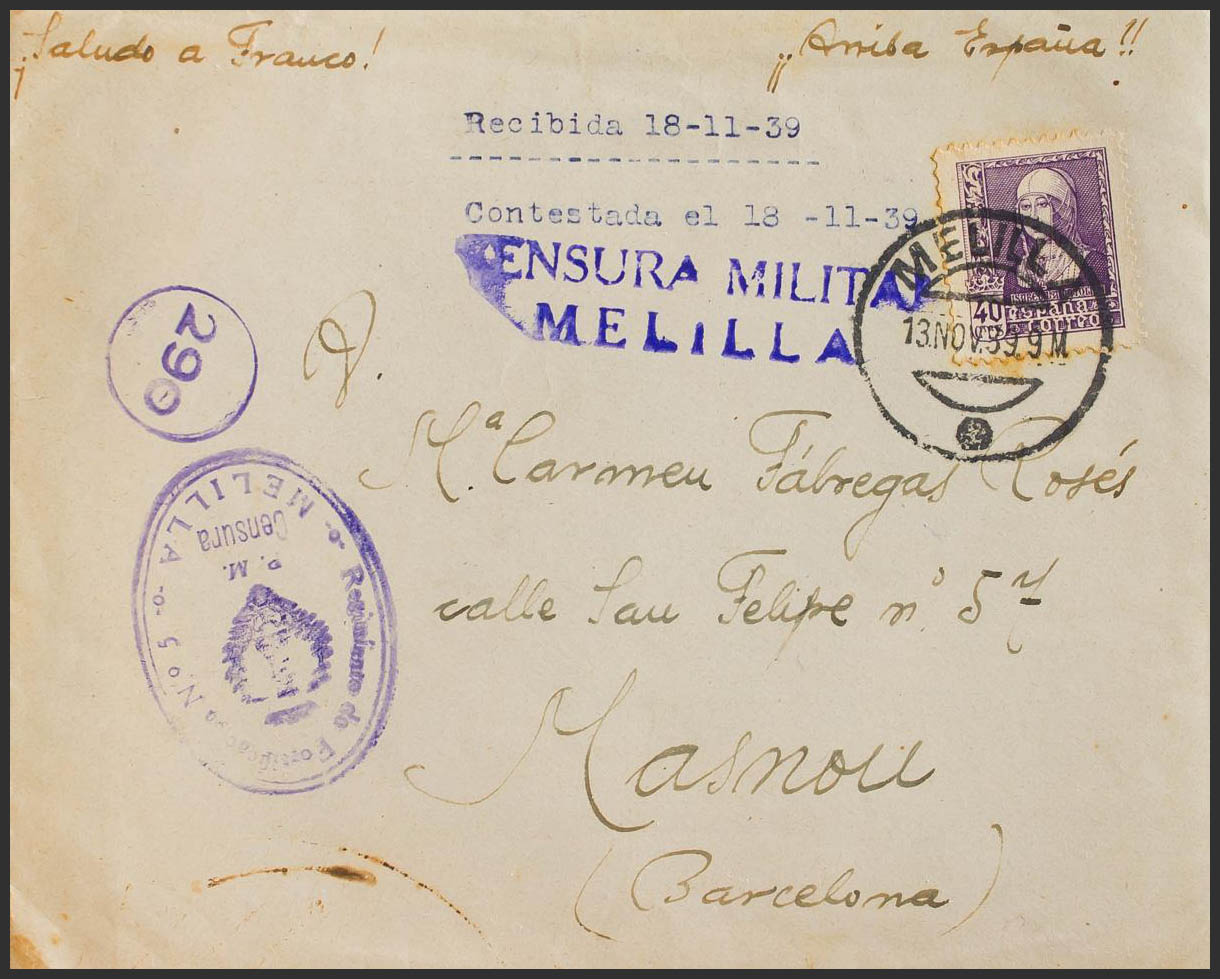 ¡Saludo a Franco!
¡¡Arriba España!!
Recibida 18-11-39
Contestada el 18 -11-39
CENSURA MILITAR
MELILLA
MELILL
13.NOV.39.9M
ISABEL
40
CTS
españa
correos
290
D.
Mª. Carmen Fábregas Rosés
calle San Felipe nº 57
Masnou
(Barcelona)
-o- MELILLA -o-
Regimiento de Fortificación Nº 5
P. M.
Censura